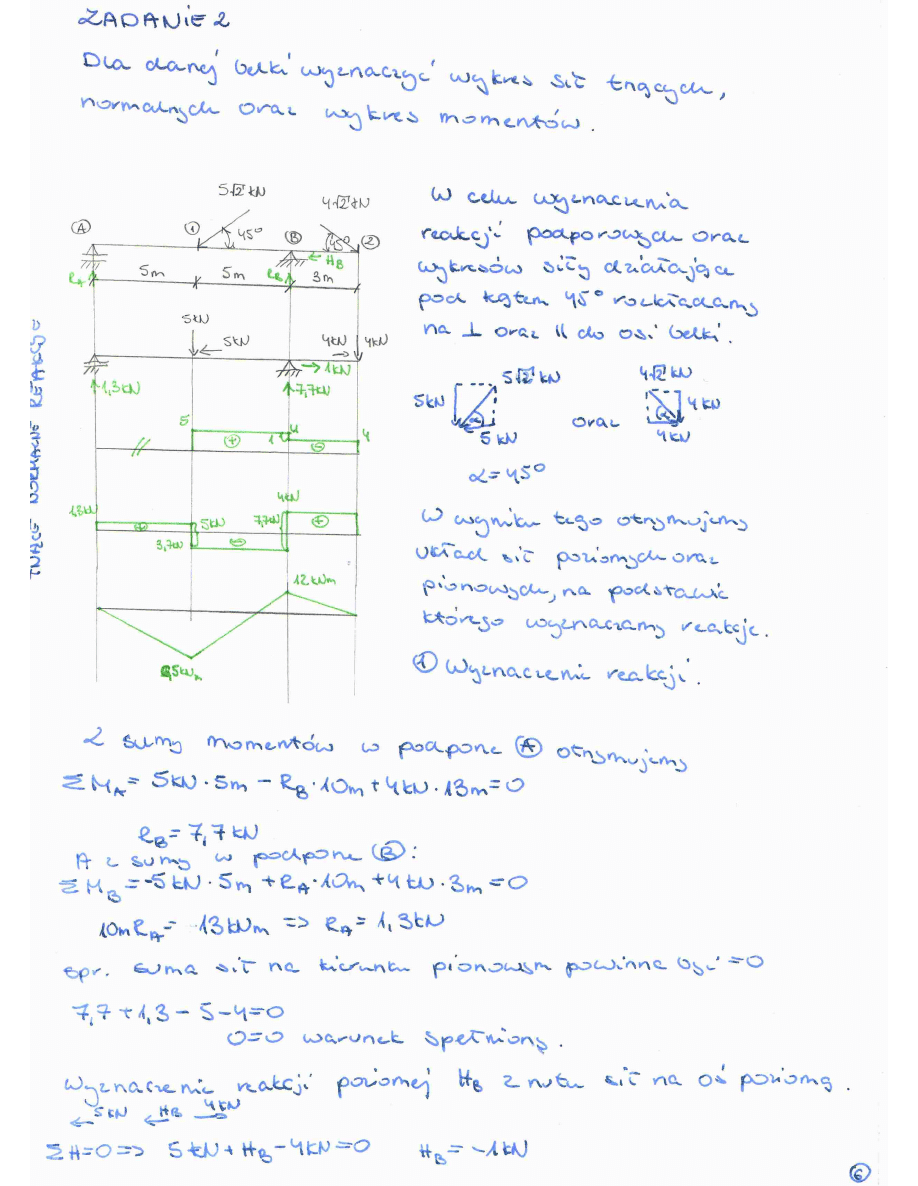 ZADANIE 2
Dla danej belki wyznaczyć wykres sił tnących,
normalnych oraz wykres momentów.
5√2 kN
4√2 kN
A
1
45°
B
45°
2
H_B
R_A
5m
5m
R_B
3m
5kN
5kN
4kN
4kN
1kN
1,3kN
7,7kN
5
1
4
4
+
-
1,3kN
+
5kN
3,7kN
-
7,7kN
4kN
+
12 kNm
6,5kNm
TNĄCE NORMALNE REAKCJE
W celu wyznaczenia
reakcji podporowych oraz
wykresów siły działające
pod kątem 45° rozkładamy
na ⊥ oraz || do osi belki.
5√2 kN
5kN
α
5 kN
oraz
4√2 kN
4 kN
α
4kN
α = 45°
W wyniku tego otrzymujemy
układ sił poziomych oraz
pionowych, na podstawie
którego wyznaczamy reakcje.
① Wyznaczenie reakcji.
Z sumy momentów w podporze Ⓐ otrzymujemy
ΣM_A = 5kN · 5m - R_B · 10m + 4kN · 13m = 0
R_B = 7,7 kN
A z sumy w podporze Ⓑ:
ΣM_B = -5kN · 5m + R_A · 10m + 4kN · 3m = 0
10m R_A = 13kNm => R_A = 1,3kN
spr. suma sił na kierunku pionowym powinna być = 0
7,7 + 1,3 - 5 - 4 = 0
0=0 warunek spełniony.
Wyznaczenie reakcji poziomej H_B z rzutu sił na oś poziomą.
5kN H_B 4kN
ΣH=0 => 5kN + H_B - 4kN = 0 H_B = -1kN
6